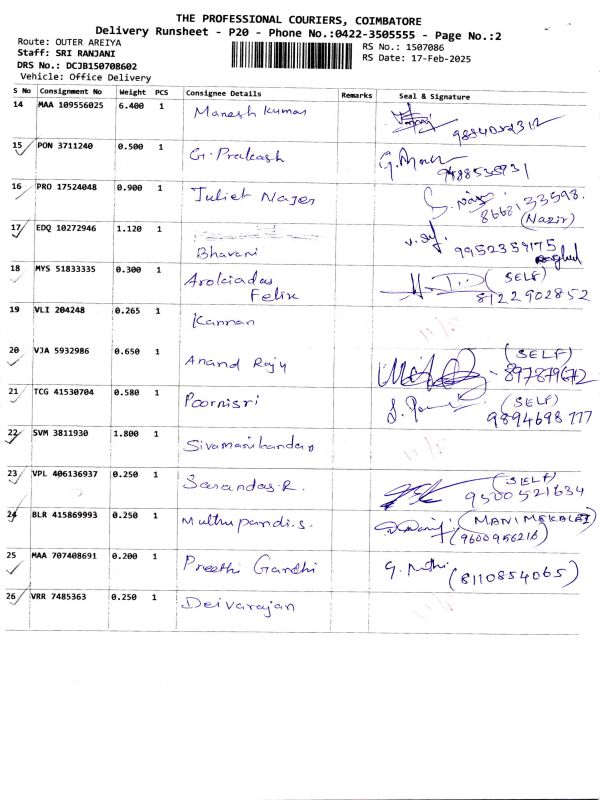 THE PROFESSIONAL COURIERS, COIMBATORE
Delivery Runsheet - P20 - Phone No.:0422-3505555 - Page No.:2
Route: OUTER AREIYA
RS No.: 1507086
Staff: SRI RANJANI
RS Date: 17-Feb-2025
DRS No.: DCJB150708602
Vehicle: Office Delivery
S No Consignment No Weight PCS Consignee Details Remarks Seal & Signature
14 MAA 109556025 6.400 1 Manesh Kumar
15 PON 3711240 0.500 1 G. Prakash
16 PRO 17524048 0.900 1 Juliet Nazer 8668133598.
(Nazir)
17 EDQ 10272946 1.120 1
Bhavani 9952359175
18 MYS 51833335 0.300 1 Arokiadas (SELF)
Felix 8122902852
19 VLI 204248 0.265 1 Kannan
20 VJA 5932986 0.650 1 Anand Raju (SELF)
21 TCG 41530704 0.580 1 Poornisri (SELF)
9894698777
22 SVM 3811930 1.800 1 Sivamanikandan
23 VPL 406136937 0.250 1 Sarandas.R. (SELF)
9500521634
24 BLR 415869993 0.250 1 Muthupandi.s. (MANIMEKALAI)
(9600956216)
25 MAA 707408691 0.200 1 Preethi Gandhi (8110854065)
26 VRR 7485363 0.250 1 Deivarajan